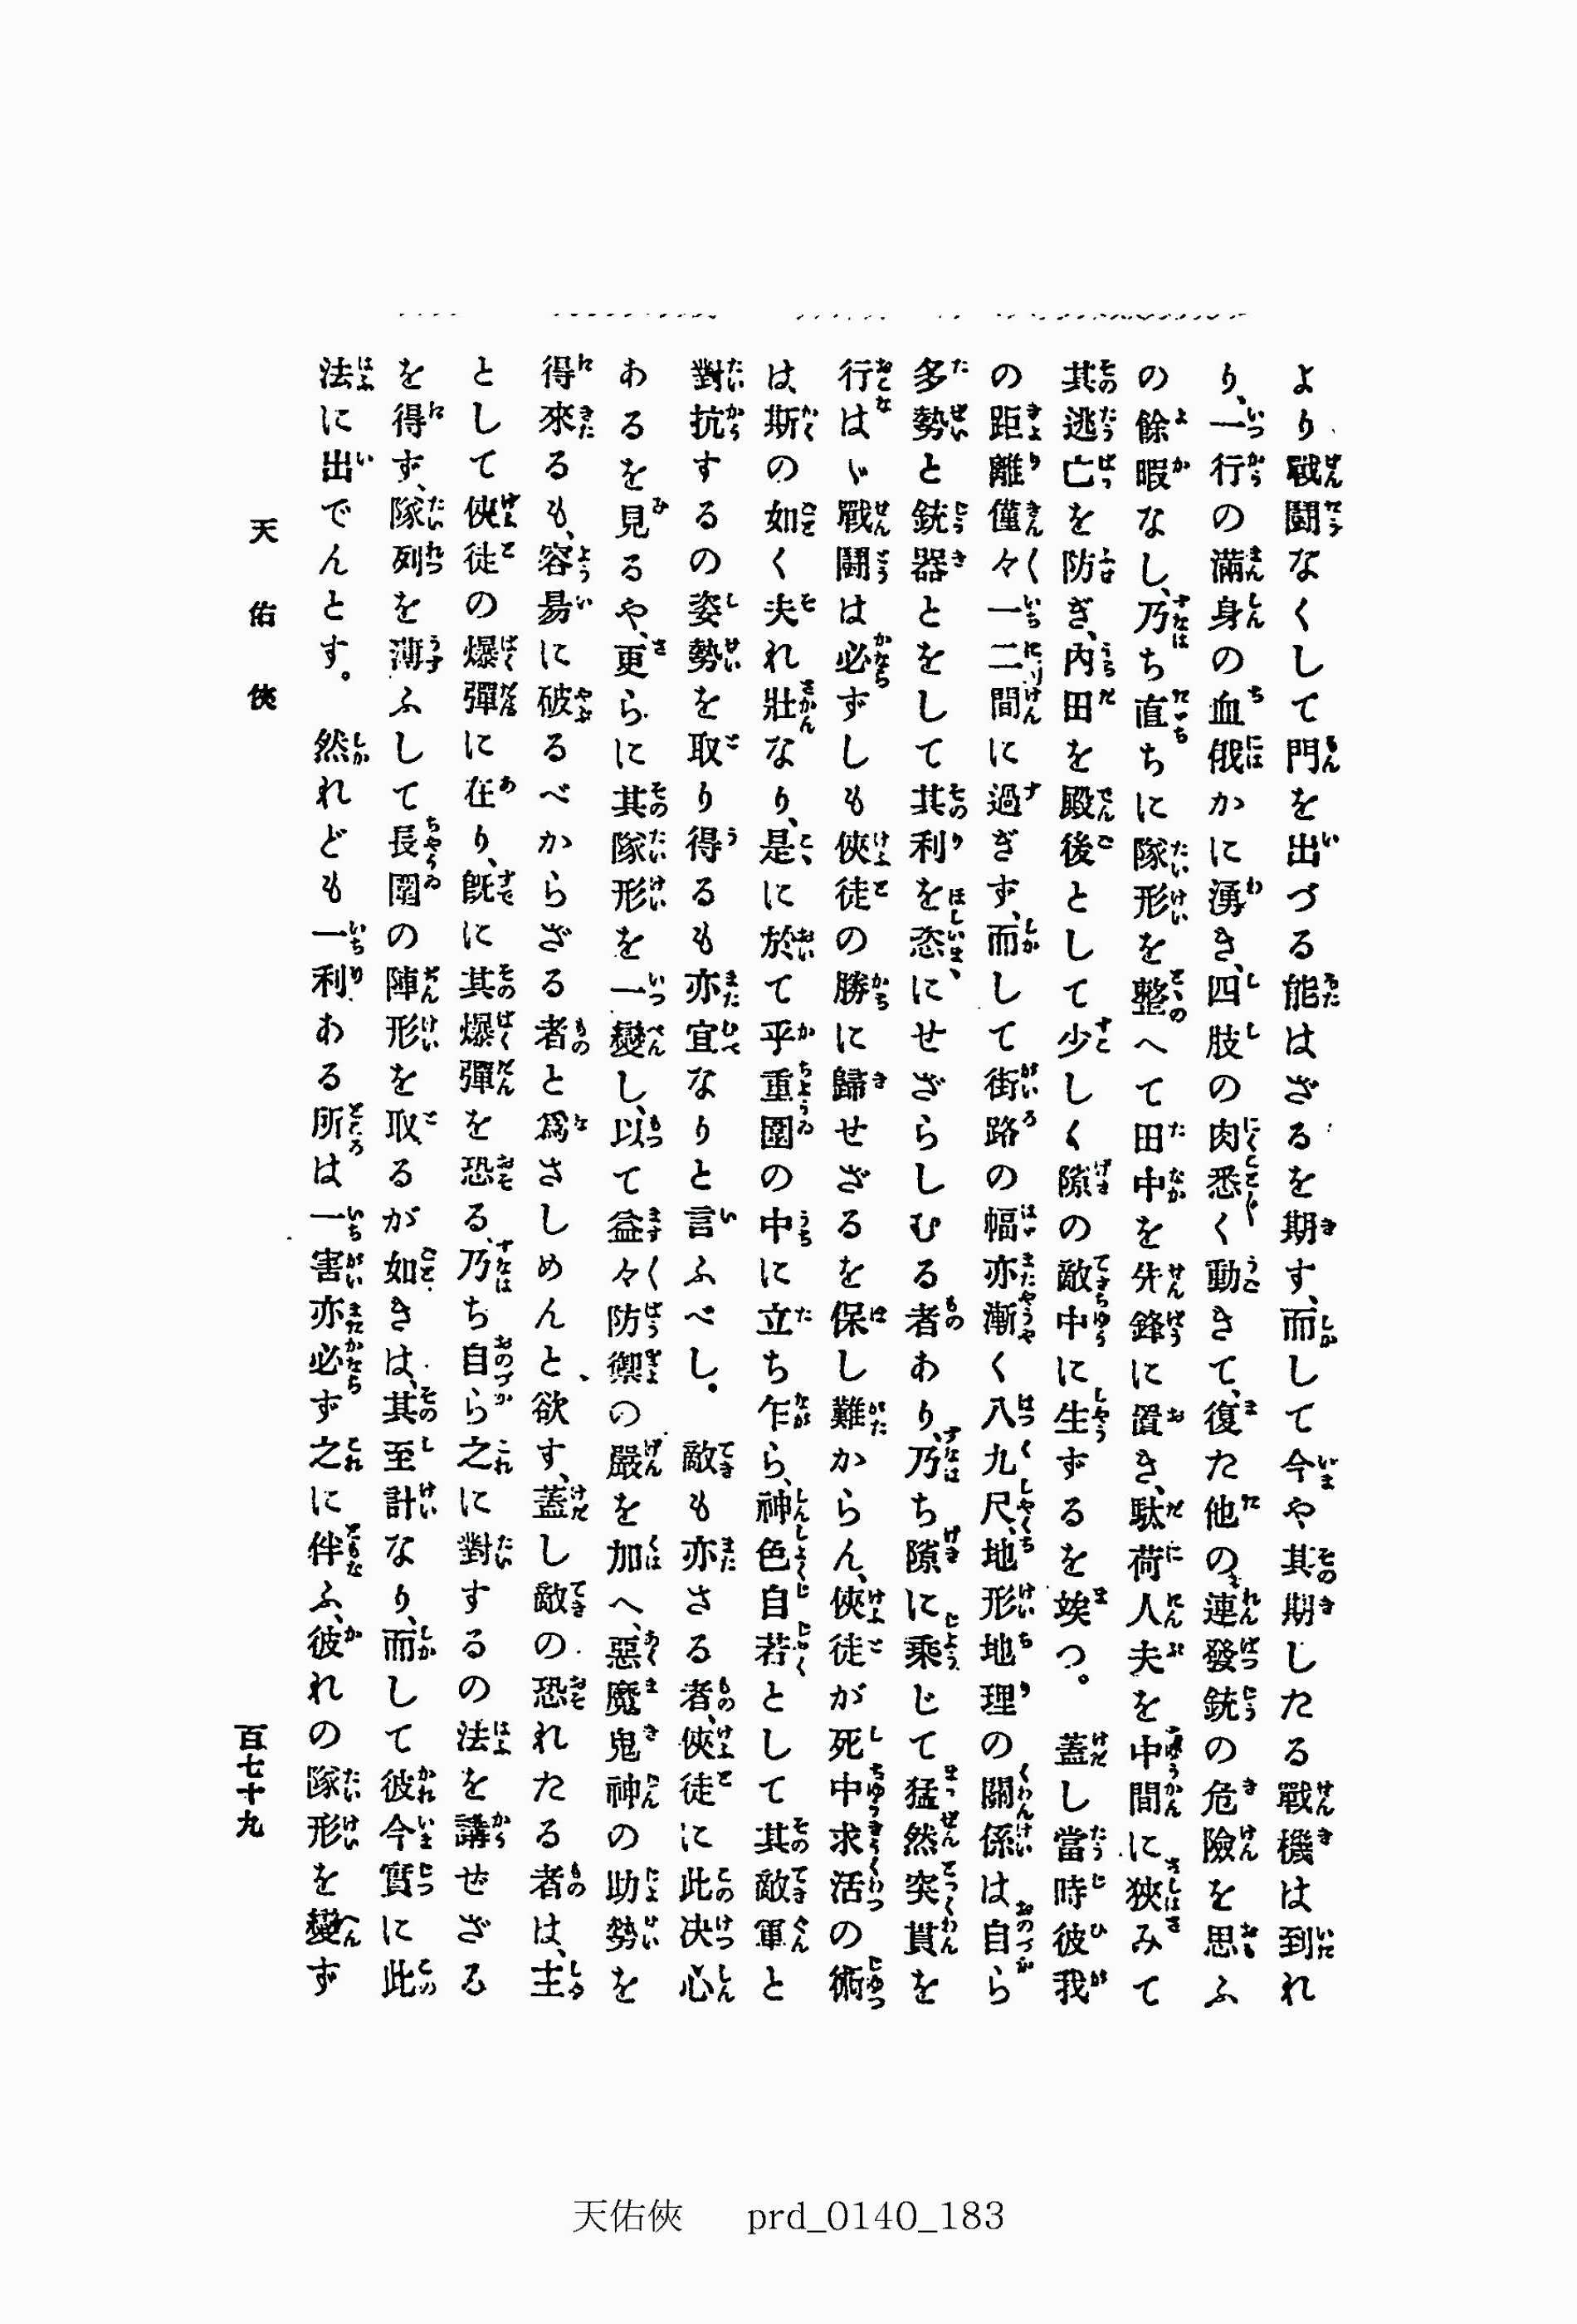 より戰鬪なくして門を出づる能はざるを期す、而して今や其期したる戰機は到れ
り、一行の滿身の血俄かに湧き、四肢の肉悉く動きて、復た他の連發銃の危險を思ふ
の餘暇なし、乃ち直ちに隊形を整へて田中を先鋒に置き、駄荷人夫を中間に狹みて
其逃亡を防ぎ、內田を殿後として少しく隙の敵中に生ずるを竢つ。　蓋し當時彼我
の距離僅々一二間に過ぎず、而して街路の幅亦漸く八九尺、地形地理の關係は自ら
多勢と銃器とをして其利を恣にせざらしむる者あり、乃ち隙に乘じて猛然突貫を
行はゞ戰鬪は必ずしも俠徒の勝に歸せざるを保し難からん、俠徒が死中求活の術
は、斯の如く夫れ壯なり、是に於て乎重圍の中に立ち乍ら、神色自若として其敵軍と
對抗するの姿勢を取り得るも亦宜なりと言ふべし。　敵も亦さる者、俠徒に此决心
あるを見るや、更らに其隊形を一變し、以て益々防禦の嚴を加へ、惡魔鬼神の助勢を
得來るも、容易に破るべからざる者と爲さしめんと、欲す、蓋し敵の恐れたる者は、主
として俠徒の爆彈に在り、旣に其爆彈を恐る、乃ち自ら之に對するの法を講せざる
を得ず、隊列を薄ふして長圍の陣形を取るが如きは、其至計なり、而して彼今實に此
法に出でんとす。　然れども一利ある所は一害亦必ず之に伴ふ、彼れの隊形を變ず
天佑俠
百七十九
天佑俠　prd_0140_183